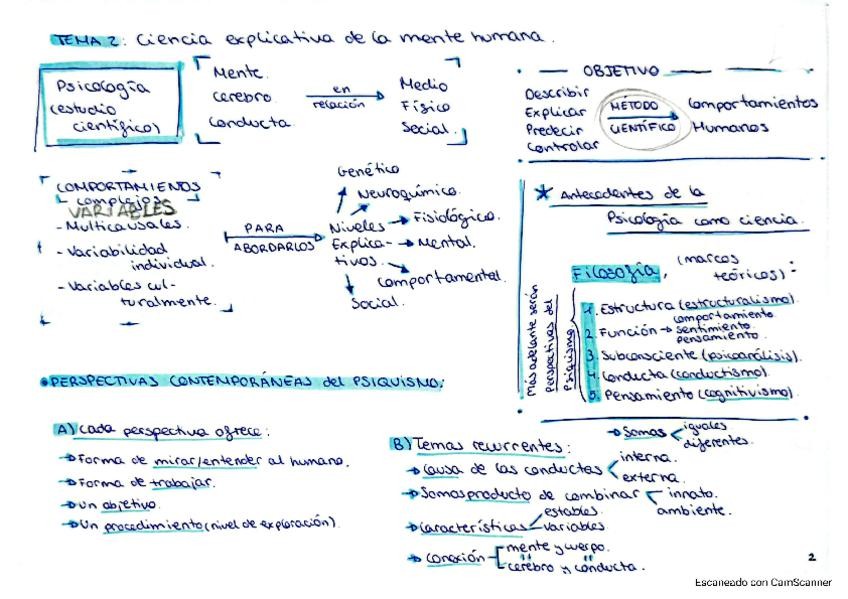 TEMA 2: Ciencia explicativa de la mente humana.
Psicología
(estudio
científico)
Mente.
Cerebro.
Conducta
en
relación
Medio
Físico
Social.
OBJETIVO
Describir
Explicar
Predecir
Controlar
MÉTODO
CIENTÍFICO
Comportamientos
Humanos
COMPORTAMIENTOS
complejos
VARIABLES
- Multicausales.
- Variabilidad
individual.
- Variables cul-
turalmente.
PARA
ABORDARLOS
Niveles
Explica-
tivos.
Genético
Neuroquímico.
Fisiológico.
Mental.
Comportamental.
Social.
* Antecedentes de la
Psicología como ciencia.
Filosofía, (marcos
teóricos):
Más adelante serán
perspectivas del
Psiquismo.
1. Estructura (estructuralismo).
2. Función → comportamiento
sentimiento.
pensamiento.
3. Subconsciente (psicoanálisis).
4. Conducta (conductismo).
5. Pensamiento (cognitivismo).
• PERSPECTIVAS CONTEMPORÁNEAS del PSIQUISMO:
A) Cada perspectiva ofrece:
→ Forma de mirar/entender al humano.
→ Forma de trabajar.
→ Un objetivo.
→ Un procedimiento (nivel de exploración).
B) Temas recurrentes:
→ Somos < iguales
diferentes.
→ Causa de las conductas < interna.
externa.
→ Somos producto de combinar < innato.
ambiente.
→ Características < estables
variables
→ Conexión [ mente y cuerpo.
cerebro y conducta.
2
Escaneado con CamScanner